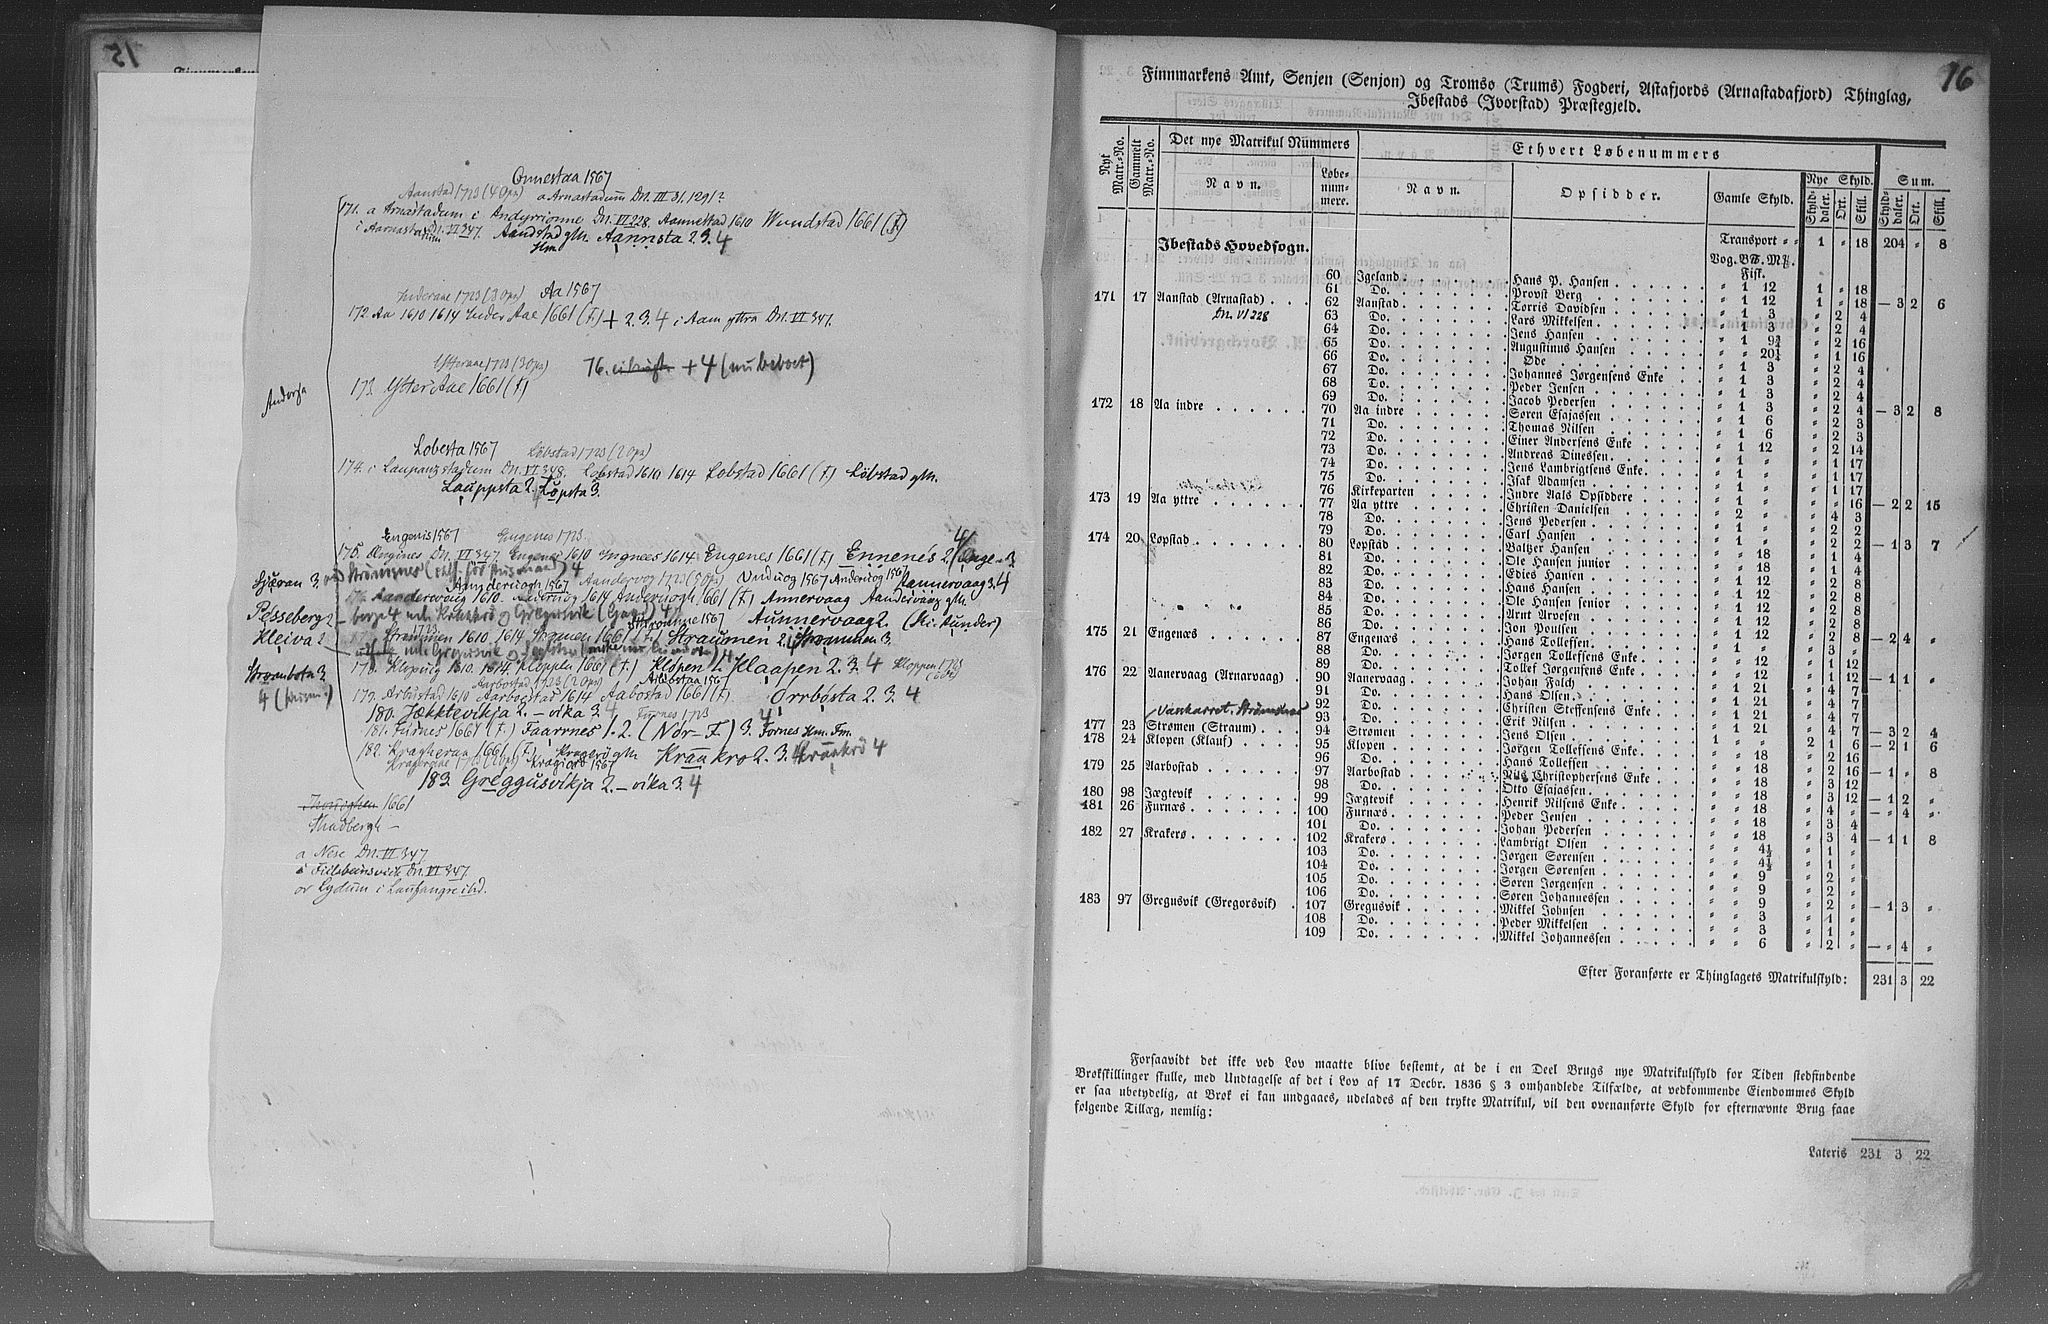 15
Onnestaa 1567
Aanstad 1723 (4 Ops) a Arnastadum Dn. III 31. 1291?
171. a Arnastadum i Andyrionne Dn. VI 228. Aannestad 1610 Wundstad 1661 (f)
i Aarnastadum Dn. VI 347. Aandstad glm. Aannsta 2. 3. 4
Hm.
Inderaae 1723 (3 Ops) Aa 1567
172. Aa 1610 1614 Inder Aae 1661 (f) + 2. 3. 4 i Aom yttra Dn. VI 347.
Ytteraae 1723 (3 Ops) 76. + 4 (nu beboet)
173. Ytter Aae 1661 (f)
Andorja
Lobesta 1567 Löbstad 1723 (2 ops)
174. i Laupangstadum Dn. VI 348. Lobstad 1610 1614 Lobstad 1661 (f.) Löbstad glm.
Lauppsta 2. Løpsta 3.
Engenis 1567 Engenes 1723
175. Ængines Dn. VI 347 Engenes 1610 Ingnees 1614 Engenes 1661 (f.) Ennenes 2.
Straumen 1610. 1614 Stromen 1661 (f.) Straumen 2. 4 Strommen 3.
Pesseberg 2
Kleiva 2
Straanbota 3.
178. Klopuig 1610. 1614. Kloppen 1661 (f.) Klopen 1. Klaapen 2. 3. 4 Kloppen 1723
Aarbostad 1723 (2 Ops) Arbostaa 1567
179. Arbustad 1610 Aarboestad 1614 Aabostad 1661 (f.) Orrbosta 2. 3. 4
180. Jækktevikja 2. – vika 3. 4 Furnes 1723
181. Furnes 1661 (f.) Faarnes 1. 2 (Nor-F.) 3. Fornes Hm. Fm.
182. Kragherøn 1661 (f.) Kragerö glm. Kraakro 2. 3. Kraakrö 4
Kragiord 1567
183. Greggusvikja 2. – vika 3. 4
1661
Thadbergh –
a Nese Dn. VI 347
i Fillsbeinsvick Dn. VI 347
or Lydum i Laufangre ibd.
16
Finnmarkens Amt, Senjen (Senjon) og Tromsø (Trums) Fogderi, Astafjords (Arnastadafjord) Thinglag,
Ibestads (Ivorstad) Præstegjeld.
Nyt Matr.-No. Gammelt Matr.-No. Det nye Matrikul Nummers Ethvert Løbenummers
Navn. Løbenummere. Navn. Opsidder. Gamle Skyld. Nye Skyld. Sum.
Skylddaler. Ort. Skill. Skylddaler. Ort. Skill.
Ibestads Hovedsogn. Transport 〃 〃 1 〃 18 204 〃 8
Vog. B℔. M℔.
Fisk.
60 Igeland Hans P. Hansen 〃 1 12
61 Do. Provst Berg 〃 1 12 1 〃 18
171 17 Aanstad (Arnastad) 62 Aanstad Torris Davidsen 〃 1 3 1 〃 18 — 3 2 6
Dn. VI 228 63 Do. Lars Mikkelsen 〃 1 3 〃 2 4
64 Do. Jens Hansen 〃 1 9¾ 〃 2 4
65 Do. Augustinus Hansen 〃 〃 20¼ 〃 2 16
66 Do. Øde 〃 1 3 〃 1 16
67 Do. Johannes Jørgensens Enke 〃 1 3 〃 2 4
68 Do. Peder Jensen 〃 1 3 〃 2 4
69 Do. Jacob Pedersen 〃 1 3 〃 2 4
172 18 Aa indre 70 Aa indre Søren Esajassen 〃 1 6 〃 2 4 — 3 2 8
71 Do. Thomas Nilsen 〃 1 6 〃 2 3
72 Do. Einer Andersens Enke 〃 1 12 〃 2 3
73 Do. Andreas Dinessen 〃 1 〃 〃 2 14
74 Do. Jens Lambrigtsens Enke 〃 1 〃 〃 1 17
75 Do. Isak Adamsen 〃 1 〃 〃 1 17
76 Kirkeparten Indre Aas Opsiddere 〃 1 〃 〃 1 17
173 19 Aa yttre 77 Aa yttre Christen Danielsen 〃 2 〃 〃 〃 16 — 2 2 15
78 Do. Jens Pedersen 〃 1 〃 〃 4 3
79 Do. Carl Hansen 〃 1 〃 〃 2 2
174 20 Lopstad 80 Lopstad Baltzer Hansen 〃 〃 18 〃 2 2 — 1 3 7
81 Do. Ole Hansen junior 〃 〃 18 〃 1 4
82 Do. Edies Hansen 〃 1 12 〃 1 4
83 Do. Hans Hansen 〃 1 12 〃 2 8
84 Do. Ole Hansen senior 〃 1 12 〃 2 8
85 Do. Arnt Arvesen 〃 1 12 〃 2 8
86 Do. Jon Poulsen 〃 1 12 〃 2 8
175 21 Engenæs 87 Engenæs Hans Tollefsen 〃 1 〃 〃 2 8 — 2 4 〃
88 Do. Jørgen Tollefsens Enke 〃 〃 12 〃 3 〃
89 Do. Tollef Jørgensens Enke 〃 〃 12 〃 1 12
176 22 Aanervaag (Arnarvaag) 90 Aanervaag Johan Falch 〃 1 21 〃 1 12 — 1 1 〃
91 Do. Hans Olsen 〃 1 21 〃 4 7
92 Do. Christen Steffensens Enke 〃 1 21 〃 4 7
93 Do. Erik Nilsen 〃 1 21 〃 4 7
177 23 Strømen (Straum) 94 Strømen Jens Olsen 1 〃 〃 〃 4 7 — 3 2 4
178 24 Klopen (Klauf) 95 Klopen Jørgen Tollefsens Enke 〃 1 〃 2 1 6 — 2 1 6
96 Do. Hans Tollefsen 〃 〃 18 〃 2 16
179 25 Aarbostad 97 Aarbostad Nils Christophersens Enke 〃 〃 18 〃 2 16 — 1 〃 8
98 Do. Otto Esajassen 〃 〃 18 〃 3 12
180 98 Jægtevik 99 Jægtevik Henrik Nilsens Enke 〃 〃 18 〃 3 12 — 1 2 〃
181 26 Furnæs 100 Furnæs Peder Jensen 〃 〃 18 〃 4 〃 — 〃 4 〃
101 Do. Johan Pedersen 〃 〃 18 〃 3 4
182 27 Krakerø 102 Krakerø Lambrigt Olsen 〃 〃 4½ 〃 3 4 — 1 1 8
103 Do. Jørgen Sørensen 〃 〃 4½ 〃 1 〃
104 Do. Jørgen Sørensen 〃 〃 9 〃 1 〃
105 Do. Søren Jørgensen 〃 〃 9 〃 2 〃
106 Do. Søren Johannessen 〃 〃 9 〃 2 〃
183 97 Gregusvik (Gregorsvik) 107 Gregusvik Mikkel Johnsen 〃 〃 3 〃 2 〃 — 1 3 〃
108 Do. Peder Mikkelsen 〃 〃 3 〃 1 〃
109 Do. Mikkel Johannessen 〃 〃 6 〃 1 〃
〃 2 〃 — 〃 4 〃
Efter Foranførte er Thinglagets Matrikulskyld: 231 3 22
Forsaavidt det ikke ved Lov maatte blive bestemt, at de i en Deel Brugs nye Matrikulskyld for Tiden stedfindende
Brøkskillinger skulle, med Undtagelse af det i Lov af 17 Decbr. 1836 § 3 omhandlede Tilfælde, at vedkommende Eiendommes Skyld
er saa ubetydelig, at Brøk ei kan undgaaes, udelades af den trykte Matrikul, vil den ovenanførte Skyld for efternævnte Brug faae
følgende Tillæg, nemlig:
Lateris 231 3 22